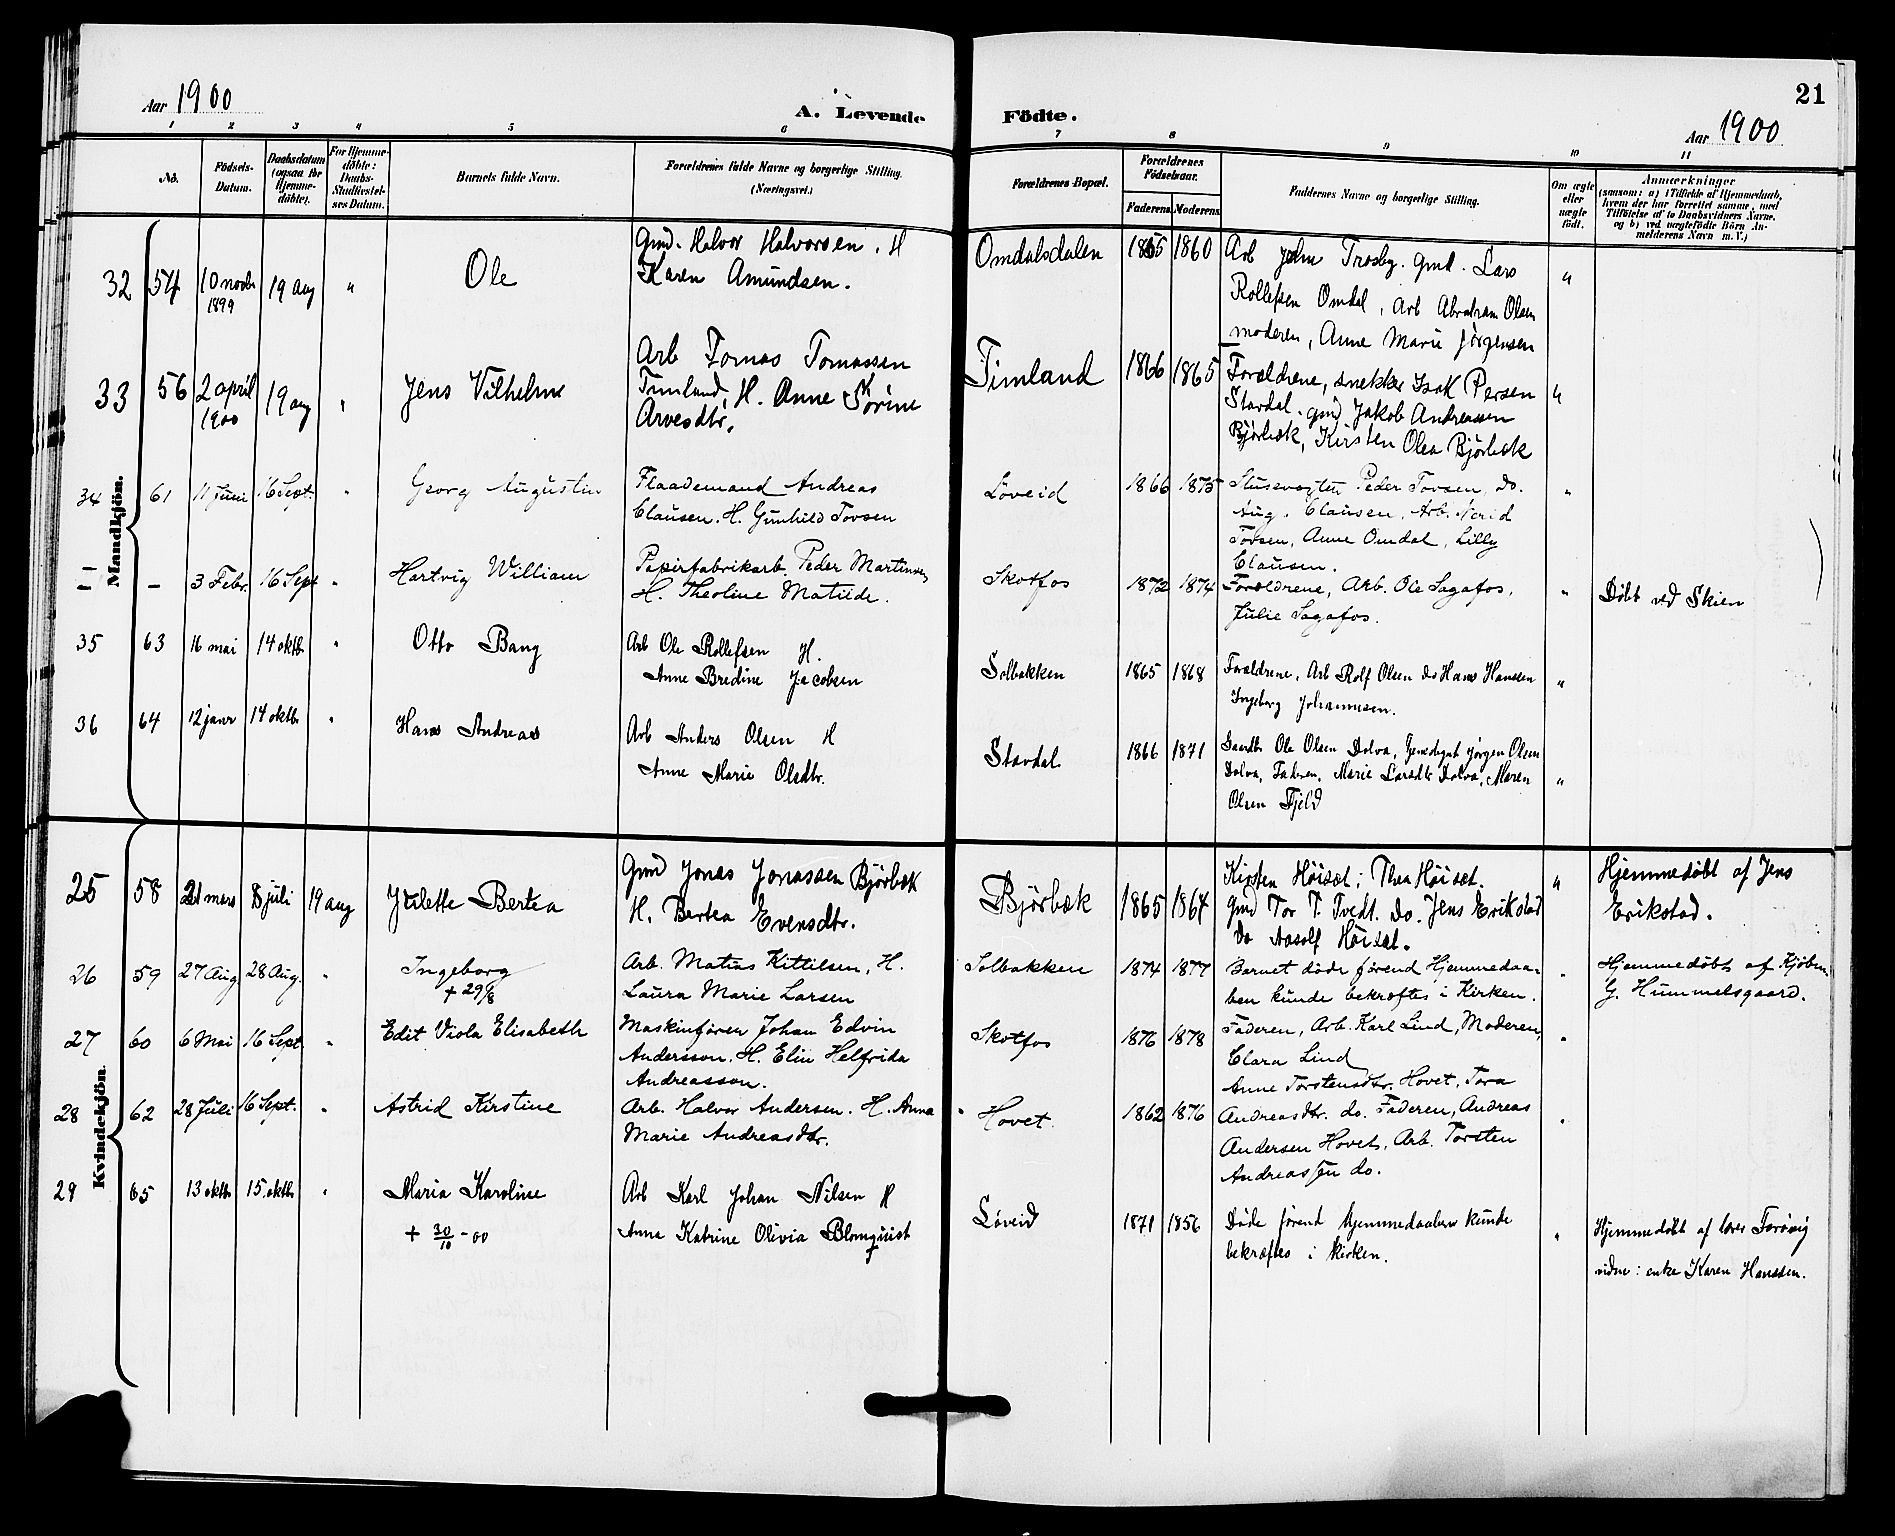 Aar 1900
A. Levende Födte.
21
Aar 1900
1 2 3 4 5 6 7 8 9 10 11
No.
Födsels-Datum.
Daabsdatum (ogsaa for Hjemme-døbte).
For Hjemme-døbte: Daabs-Stadfæstel-ses Datum.
Barnets fulde Navn.
Forældrenes fulde Navne og borgerlige Stilling. (Næringsvei.)
Forældrenes Bopæl.
Forældrenes Födselsaar.
Faderens Moderens
Faddernes Navne og borgerlige Stilling.
Om ægte eller uægte födt.
Anmærkninger
(saasom: a) i Tilfælde af Hjemmedaab,
hvem der har forrettet samme, med
Tilföielse af to Daabsvidners Navne,
og b) ved uægtefödte Börn An-
melderens Navn m. V.)
Mandkjön.
32 54 10 novbr 1899 19 aug " Ole
Gmd. Halvor Halvorsen. H
Karen Amundsen.
Omdalsdalen 1865 1860
Arb John Trosby. gmd. Lars
Rollefsen Omdal, Arb Abraham Olsen
moderen, Anne Marie Jørgensen
"
33 56 2 april 1900 19 aug " Jens Vilhelm
Arb Tomas Tomassen
Timland, H. Anne Karine
Arvesdtr.
Timland 1866 1865
Forældrene, snekker Isak Persen
Stavdal. gmd Jakob Andreassen
Bjørbæk, Kirsten Olea Bjørbæk
"
34 61 11 Juni 16 Sept. " Georg Augustin
Flaademand Andreas
Clausen. H. Gunhild Tovsen
Löveid 1866 1875
Slusevogter Peder Tovsen, do.
Aug. Clausen, Arb.
Tovsen, Anne Omdal, Lilly
Clausen.
"
– – 3 Febr. 16 Sept " Hartvig William
Papirfabrikarb. Peder Martinsen
H. Theoline Matilde.
Skotfos 1872 1874
Forældrene, Arb. Ole Sagafos,
Julie Sagafos.
"
Döbt ved Skien
35 63 16 mai 14 oktb " Otto Bang
Arb Ole Rollefsen H.
Anne Bredine Jacobsen
Solbakken 1865 1868
Forældrene, Arb Rolf Olsen do Hans Hanssen
Ingeborg Johannesen.
"
36 64 12 janr 14 oktb " Hans Andreas
Arb Anders Olsen H
Anne Marie Olsdtr.
Stavdal 1866 1871
Gaardb Ole Olsen Dolva, Jørgen Olsen
Dolva, Faderen, Marie Larsdtr Dolva, Maren
Olsen Fjeld
"
Kvindekjön.
25 58 21 mars 8 juli 19 aug Julette Bertea
Gmd Jonas Jonassen Bjørbæk
H. Bertea Evensdtr.
Bjørbæk 1865 1864
Kirsten Høisæt; Thea Høisæt.
Gmd Tor T. Tvedt. do. Jens Erikstad
do Aasolf Høisæt.
"
Hjemmedøbt af Jens
Erikstad.
26 59 27 Aug 28 Aug. " Ingeborg
+ 29/8
Arb. Matias Kittilsen, H.
Laura Marie Larsen
Solbakken 1874 1877
Barnet døde førend Hjemmedaa-
ben kunde bekræftes i Kirken.
"
Hjemmedöbt af Kjöbm.
G. Hummelsgaard.
27 60 6 Mai 16 Sept " Edit Viola Elisabeth
Maskinfören Johan Edvin
Andersson. H. Elin Helfrida
Andreasson.
Skotfos 1876 1878
Faderen, Arb. Karl Lind, Moderen,
Clara Lind
"
28 62 28 Juli 16 Sept. " Astrid Kirstine
Arb. Halvor Andersen. H. Anna
Marie Andreasdtr.
Hovet. 1862 1876
Anne Torstensdtr. Hovet, Tora
Andreasdtr. do. Faderen, Andreas
Andersen Hovet, Arb. Torsten
Andreassen do.
"
29 65 13 oktb 15. oktb " Maria Karoline
+ 30/10 - 00
Arb Karl Johan Nilsen H
Anna Katrine Olivia Blomquist
Löveid 1871 1856
Døde førend hjemmedaaben kunde
bekræftes i kirken.
"
Hjemmedöbt af lærer
vidne: enke Karen Hanssen.